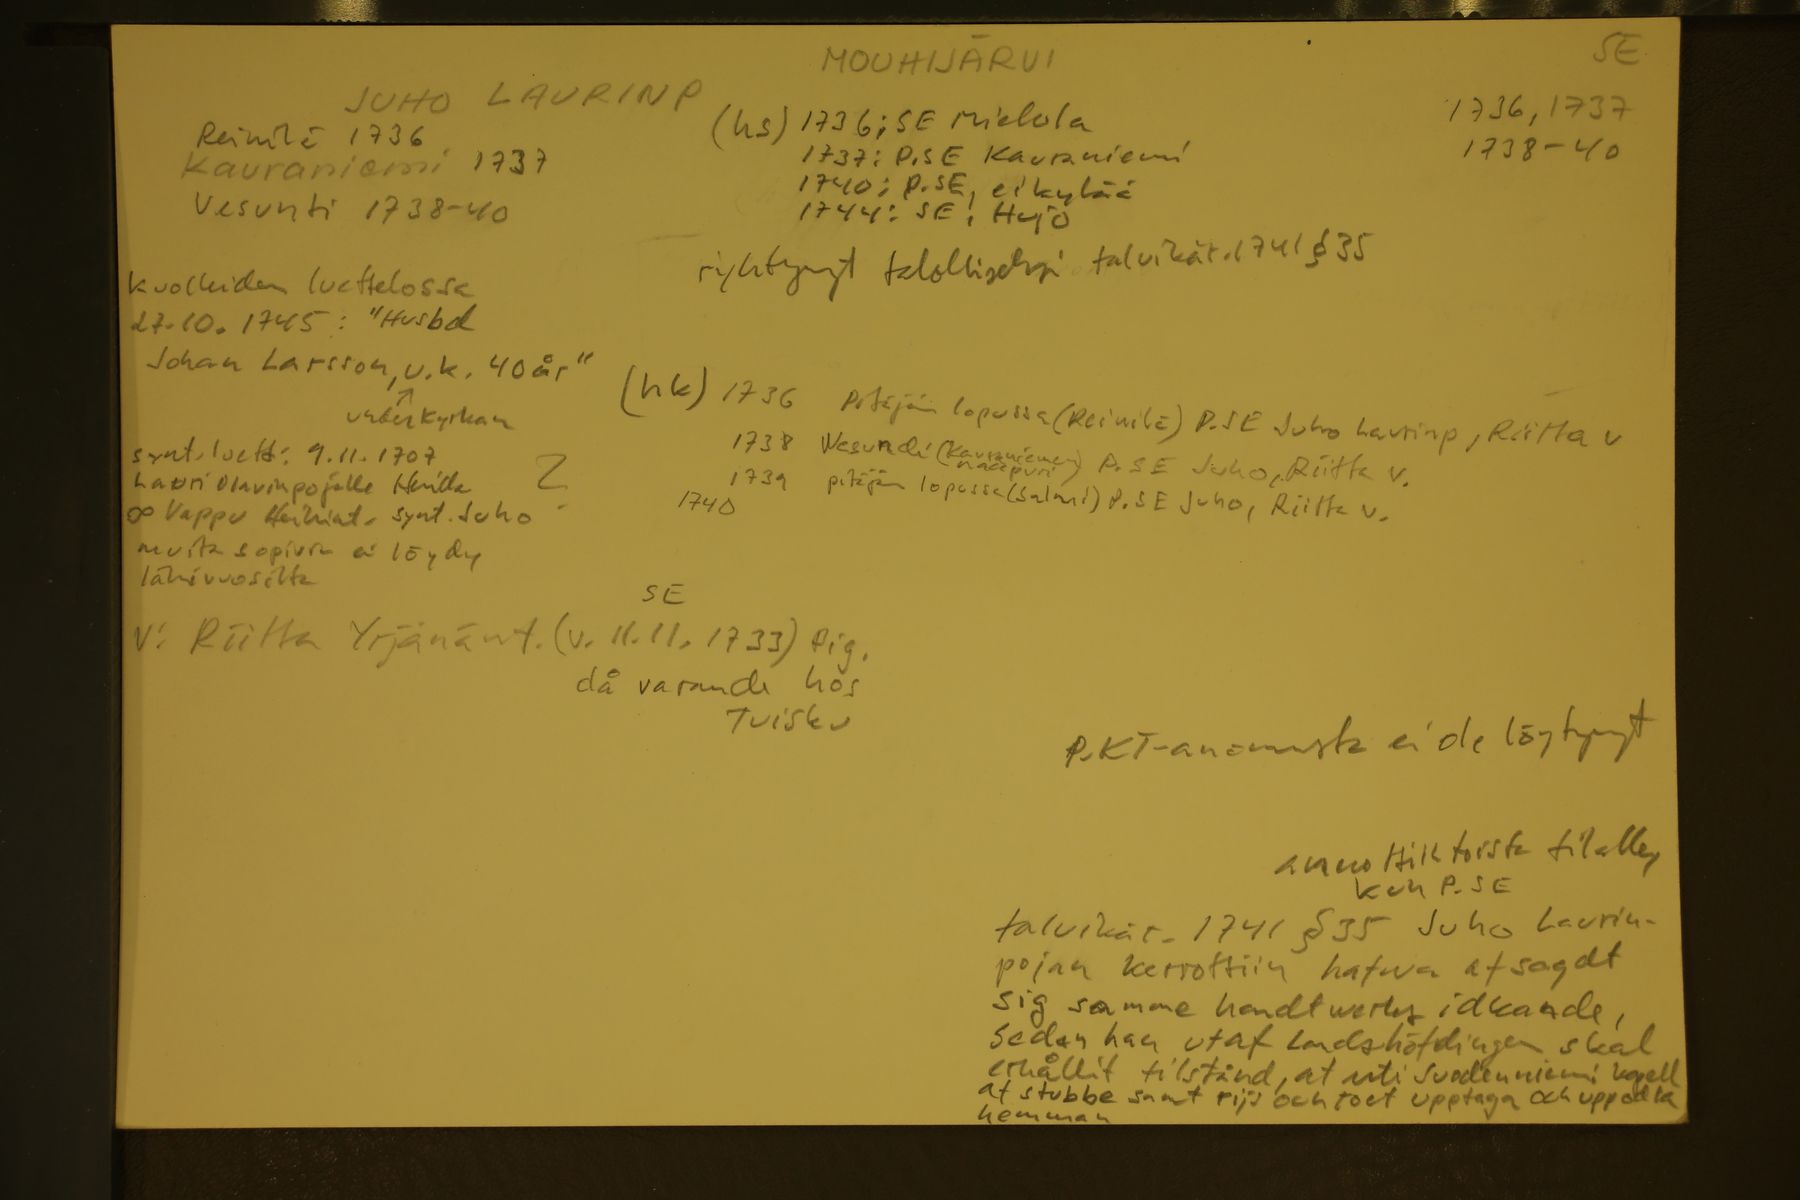 MOUHIJÄRVI
SE
JUHO LAURINP
Reinilä 1736
Kauraniemi 1737
Vesunti 1738-40
(hs) 1736; SE Mielola
1737: P.SE Kauraniemi
1740: P.SE, ei kylää
1744: SE; Hujo
1736, 1737
1738-40
ryhtynyt talolliseksi talvikär. 1741 § 35
kuolleiden luettelossa
27.10. 1745: "Husbd
Johan Larsson, u.k. 40 år"
↗
under kyrkan
synt. luett: 9.11.1707
Lauri Olavinpojalle
∞ Vappu Heikint. synt. Juho
?
muita sopivia ei löydy
lähivuosilta
(hk) 1736 Pitäjän lopussa (Reinilä) P.SE Juho Laurinp, Riitta v
1738 Vesundi (Kauraniemen naapuri) P.SE Juho, Riitta v.
1739 pitäjän lopussa (Salmi) P.SE Juho, Riitta v.
1740
SE
V: Riitta Yrjänänt. (v. 11.11. 1733) Pig.
då varande hos
Tuisku
P.KT-anomusta ei ole löytynyt
anno Hik toista tilalle,
kun P.SE
talvikär. 1741 § 35 Juho Laurin-
pojan kerrottiin hafwa afsagdt
sig samme handtwerks idkande,
sedan han utaf Landshöfdingen skal
erhållit tilstånd, at uti Suodenniemi Capell
at stubbe samt rijs och roet upptaga och uppodla
hemman